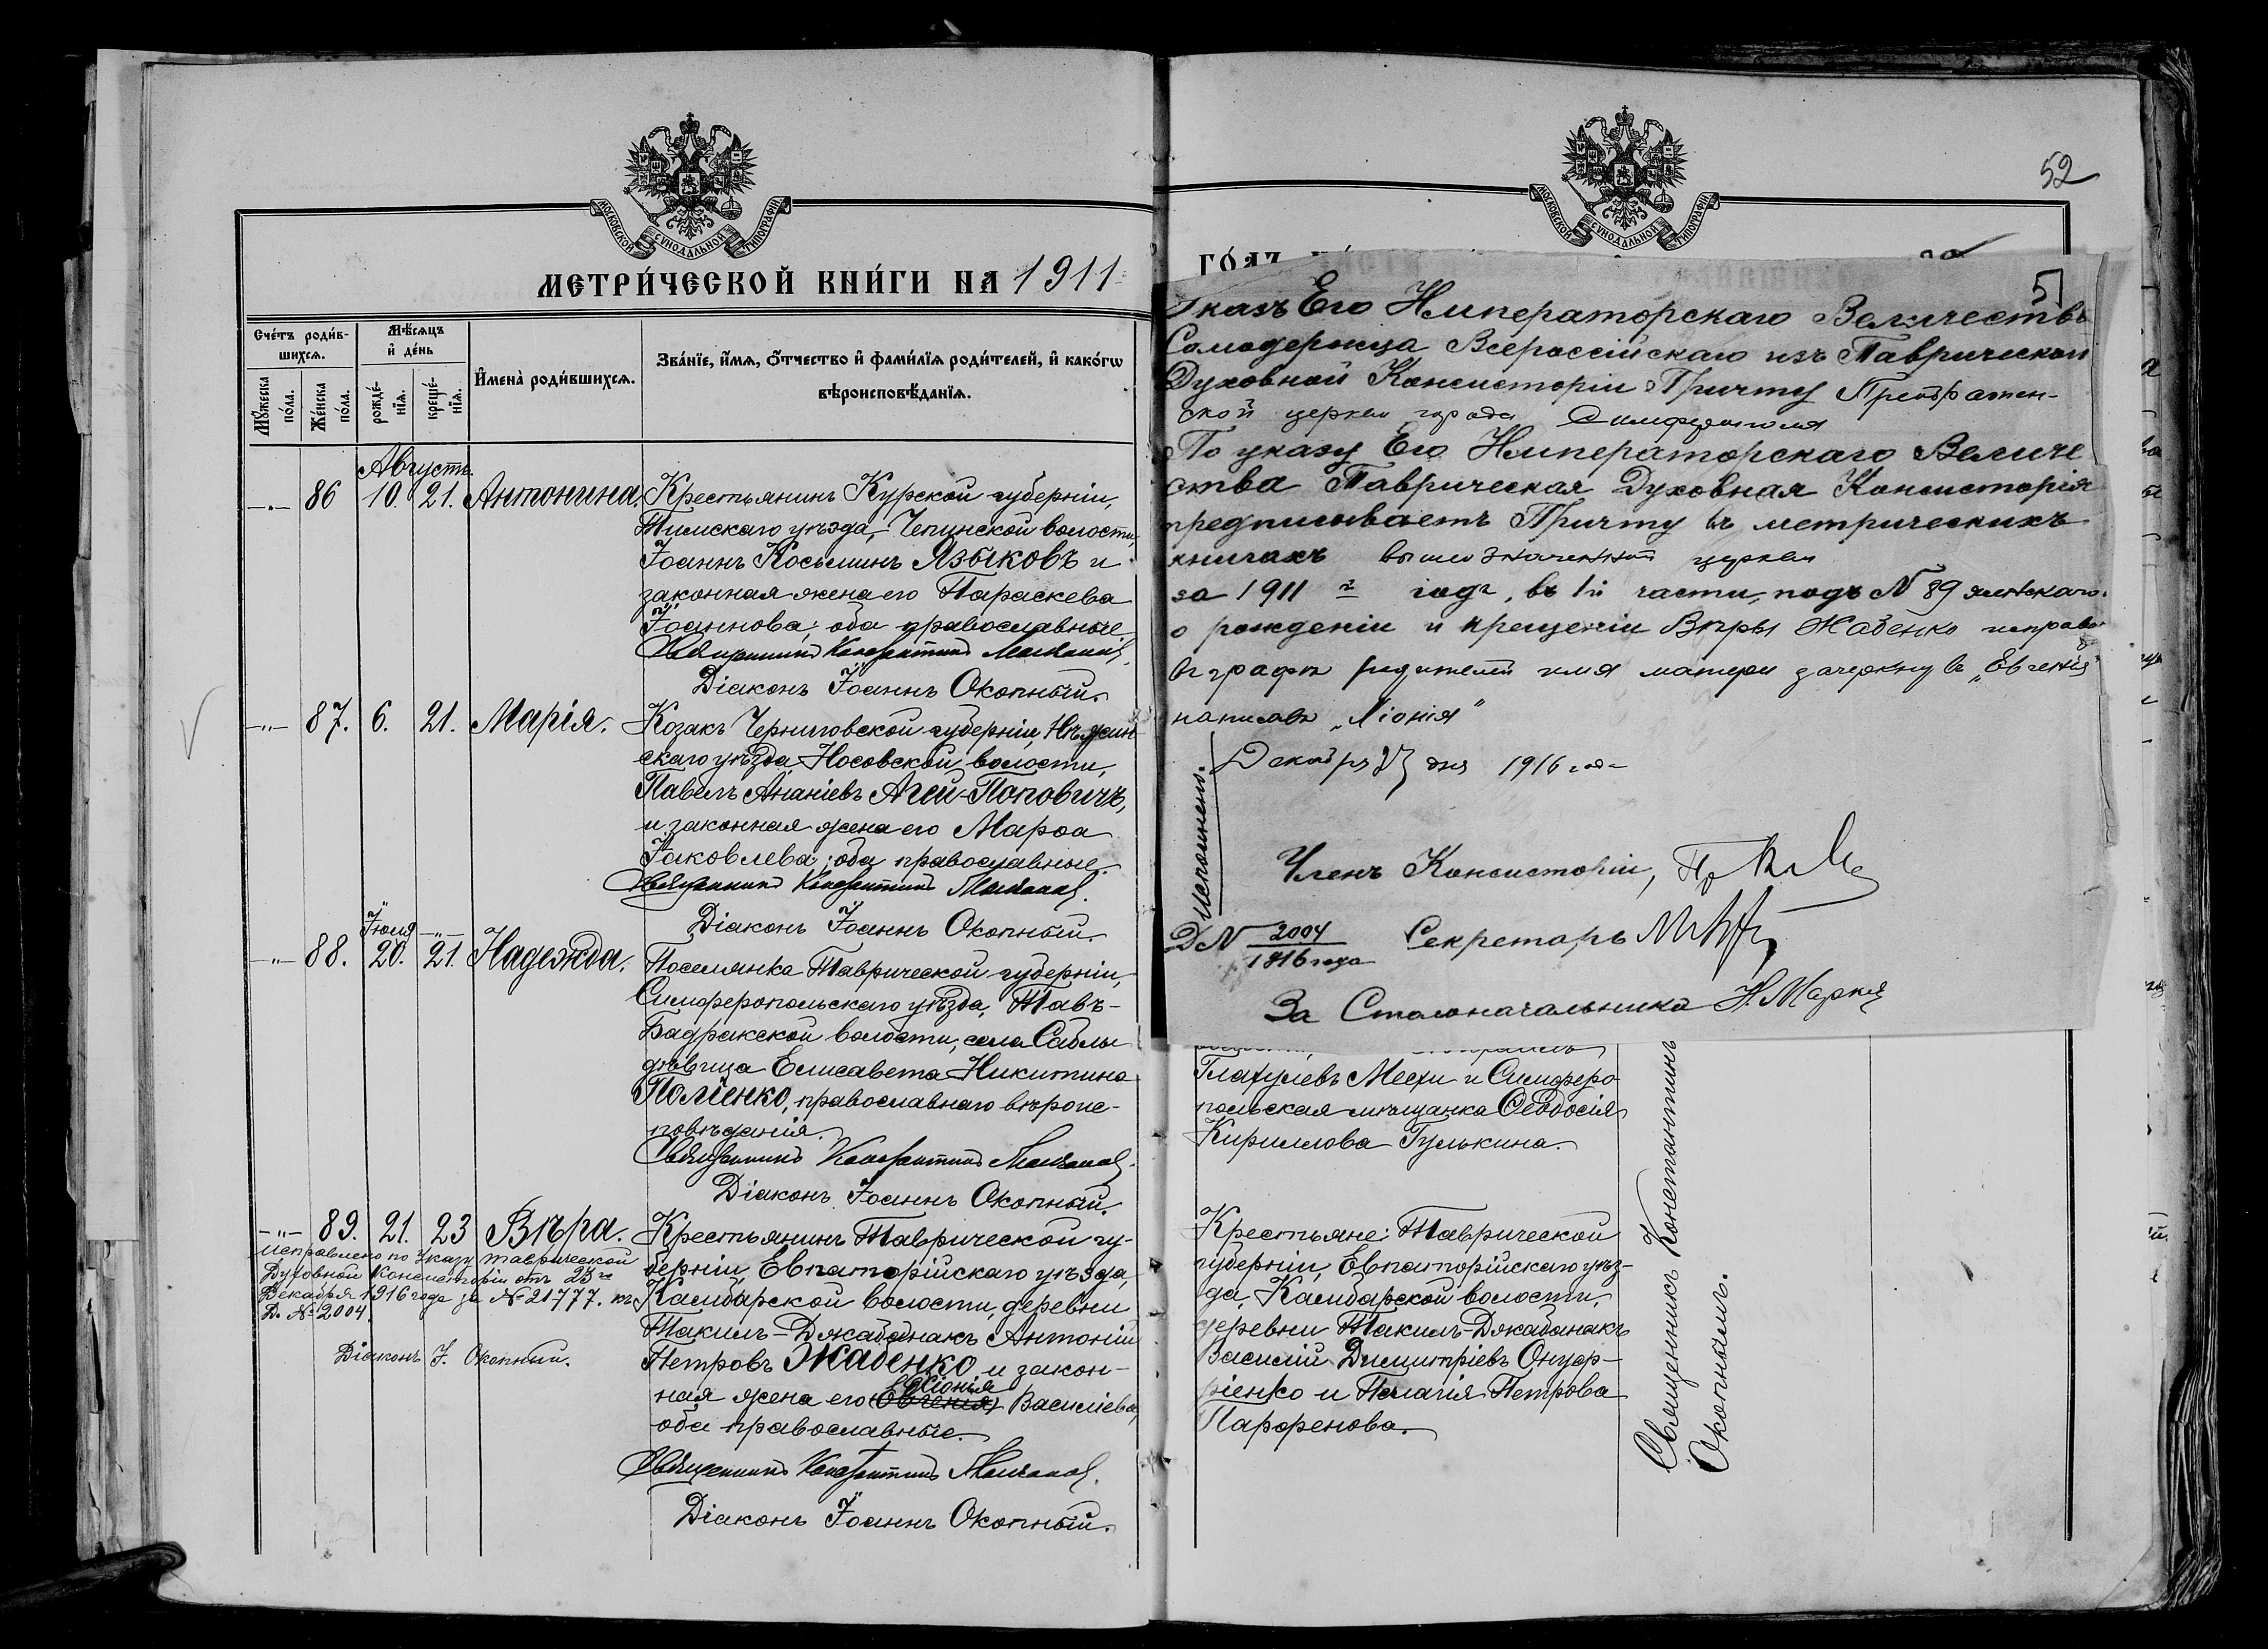 МОСКОВСКОЙ СѴНОДАЛЬНОЙ ТИПОГРАФІИ
МЕТРИ́ЧЕСКОЙ КНИ́ГИ НА 1911
Сче́тъ роди́вшихся.
Мѣ́сяцъ и҆ де́нь
И҆мена̀ роди́вшихся.
Зва́нїе, и҆́мя, ѻ҆́тчество и҆ фами́лїя роди́телей, и҆ како́гѡ
вѣроисповѣ́данїя.
Мꙋ́жеска по́ла.
Же́нска по́ла.
рожде́нїя.
креще́нїя.
Августъ.
86 10. 21. Антонина. Крестьянинъ Курской губерніи,
Тимскаго уѣзда, волости,
Іоаннъ Косьминъ Языковъ и
законная жена его Параскева
Іоаннова; оба православные.
Священникъ Константинъ
Діаконъ Іоаннъ Окопный.
87. 6. 21. Марія. Козакъ Черниговской губерніи, Нѣжин-
скаго уѣзда, Носовской волости,
Павелъ Ананіевъ Агей-Поповичъ,
и законная жена его Марѳа
Іаковлева; оба православные.
Священникъ Константинъ
Діаконъ Іоаннъ Окопный.
Іюля
88. 20. 21. Надежда. Поселянка Таврической губерніи,
Симферопольскаго уѣзда, Тавъ-
Бадракской волости, села Саблы
дѣвица Елисавета Никитина
Поліенко, православнаго вѣроис-
повѣданія.
Священникъ Константинъ
Діаконъ Іоаннъ Окопный.
89. 21. 23 Вѣра. Крестьянинъ Таврической гу-
берніи, Евпаторійскаго уѣзда,
Камбарской волости, деревни
Такилъ-Джабанакъ Антоній
Петровъ Жабенко и закон-
ная жена его Евгенія Хіонія Василіева,
оба православные.
Священникъ Константинъ
Діаконъ Іоаннъ Окопный.
Исправлено по Указу Таврической
Духовной Консисторіи отъ 23го
Декабря 1916 года за № 21777. къ
Д. № 2004.
Діаконъ І. Окопный.
МОСКОВСКОЙ СѴНОДАЛЬНОЙ ТИПОГРАФІИ
52
51
Указъ Его Императорскаго Величества
Самодержца Всероссійскаго изъ Таврической
Духовной Консисторіи Причту Преображен-
ской церкви города Симферополя
По указу Его Императорскаго Величе
ства Таврическая Духовная Консисторія
предписываетъ Причту въ метрическихъ
книгахъ вышеозначенной церкви
за 1911 г годъ, въ 1й части, подъ № 89 женскаго
о рожденіи и крещеніи Вѣры Жабенко исправ
въ графѣ родителей имя матери зачеркнувъ „Евгенія"
написавъ „Хіонія"
Декабря 23 дня 1916 года
Исполнено.
Членъ Консисторіи,
Д № 2004
1916 года
Секретарь
За Столоначальника
Меѳи и Симферо
польская мѣщанка Ѳеодосія
Кириллова Гулькина.
Крестьяне: Таврической
губерніи, Евпаторійскаго уѣз-
да, Камбарской волости,
деревни Такилъ-Джабанакъ
Василій Димитріевъ Онуф-
ріенко и Пелагія Петрова
Парфенова.
Священникъ Константинъ
Окопнымъ.